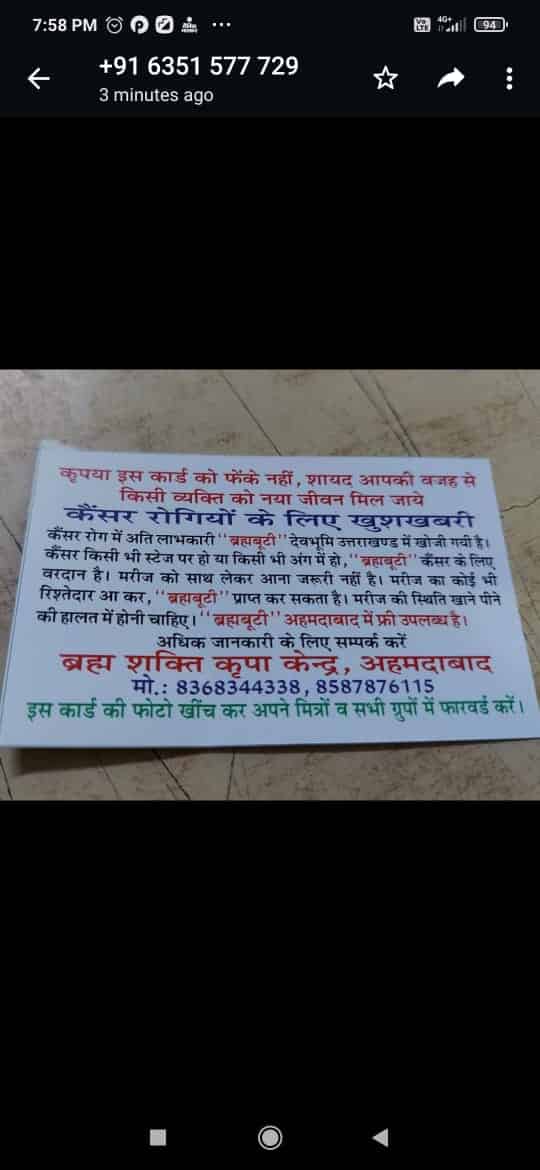 7:58 PM
4G+
94
+91 6351 577 729
3 minutes ago
कृपया इस कार्ड को फेंके नहीं, शायद आपकी वजह से
किसी व्यक्ति को नया जीवन मिल जाये
कैंसर रोगियों के लिए खुशखबरी
कैंसर रोग में अति लाभकारी "ब्रह्मबूटी" देवभूमि उत्तराखण्ड में खोजी गयी है।
कैंसर किसी भी स्टेज पर हो या किसी भी अंग में हो, "ब्रह्मबूटी" कैंसर के लिए
वरदान है। मरीज को साथ लेकर आना जरूरी नहीं है। मरीज का कोई भी
रिश्तेदार आ कर, "ब्रह्मबूटी" प्राप्त कर सकता है। मरीज की स्थिति खाने पीने
की हालत में होनी चाहिए। "ब्रह्मबूटी" अहमदाबाद में फ्री उपलब्ध है।
अधिक जानकारी के लिए सम्पर्क करें
ब्रह्म शक्ति कृपा केन्द्र, अहमदाबाद
मो.: 8368344338, 8587876115
इस कार्ड की फोटो खींच कर अपने मित्रों व सभी ग्रुपों में फारवर्ड करें।